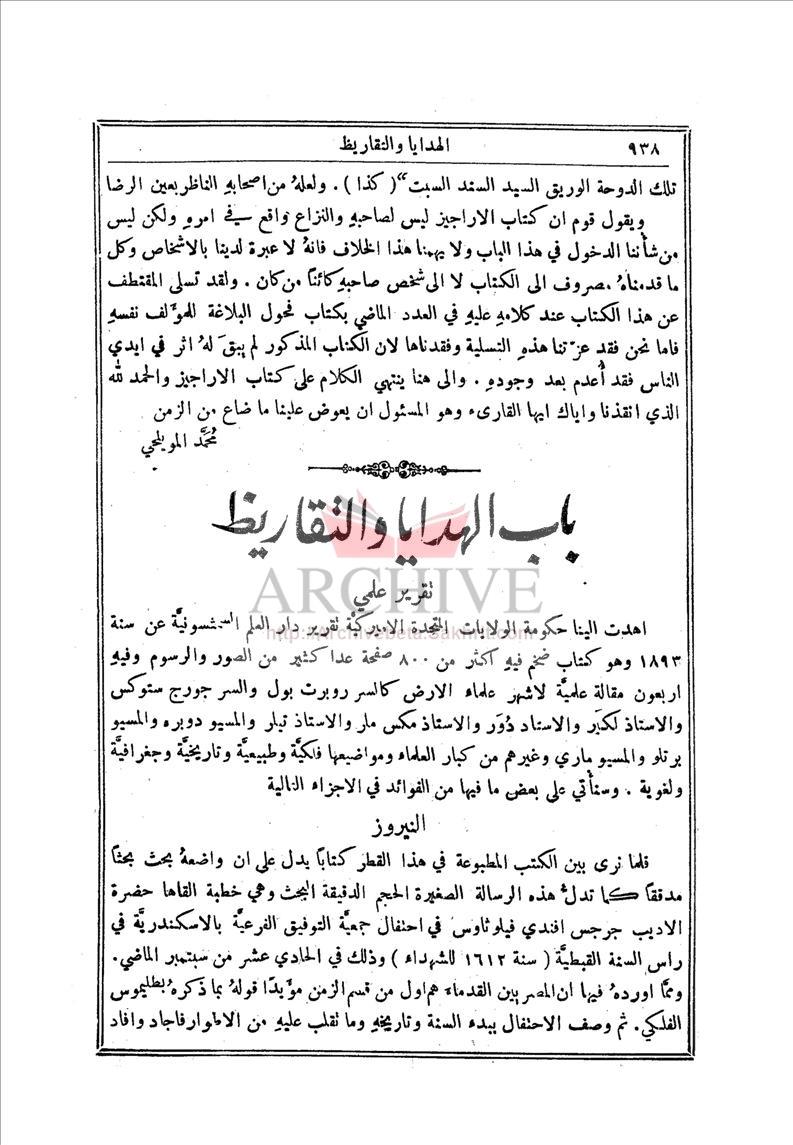 ٩٣٨
الهدايا والتقاريظ
تلك الدوحة الوريق السيد السند السبت“ (كذا) . ولعلهُ من اصحابهِ الناظر بعين الرضا
ويقول قوم ان كتاب الاراجيز ليس لصاحبهِ والنزاع واقع في امرهِ ولكن ليس
من شأننا الدخول في هذا الباب ولا يهمنا هذا الخلاف فانهُ لا عبرة لدينا بالاشخاص وكل
ما قدمناهُ مصروف الى الكتاب لا الى شخص صاحبهِ كائناً من كان . ولقد تسلى المقتطف
عن هذا الكتاب عند كلامهِ عليهِ في العدد الماضي بكتاب فحول البلاغة للمؤلف نفسهِ
فاما نحن فقد عزّتنا هذهِ التسلية وفقدناها لان الكتاب المذكور لم يبقَ لهُ اثر في ايدي
الناس فقد أُعدم بعد وجودهِ . والى هنا ينتهي الكلام على كتاب الاراجيز والحمد لله
الذي انقذنا واياك ايها القارىء وهو المسئول ان يعوض علينا ما ضاع من الزمن
محمَّد المويلحي
باب الهدايا والتقاريظ
ARCHIVE
تقرير علمي
اهدت الينا حكومة الولايات المتحدة الاميركيَّة تقرير دار العلم السمثسونيَّة عن سنة
http://Archivebeta.Sakhrit.com
١٨٩٣ وهو كتاب ضخم فيهِ اكثر من ٨٠٠ صفحة عدا كثير من الصور والرسوم وفيهِ
اربعون مقالة علميَّة لاشهر علماء الارض كالسر روبرت بول والسر جورج ستوكس
والاستاذ لكير والاستاد دُوَر والاستاذ مكس ملر والاستاذ تيلر والمسيو دوبره والمسيو
برتلو والمسيو ماري وغيرهم من كبار العلماء ومواضيعها فلكيَّة وطبيعيَّة وتاريخيَّة وجغرافيَّة
ولغوية . وسنأتي على بعض ما فيها من الفوائد في الاجزاء التالية
النيروز
قلما نرى بين الكتب المطبوعة في هذا القطر كتاباً يدل على ان واضعهُ بحث بحثاً
مدققاً كما تدلُّ هذه الرسالة الصغيرة الحجم الدقيقة البحث وهي خطبة القاها حضرة
الاديب جرجس افندي فيلوثاوس في احتفال جمعيَّة التوفيق الفرعيَّة بالاسكندريَّة في
راس السنة القبطيَّة (سنة ١٦١٢ للشهداء) وذلك في الحادي عشر من سبتمبر الماضي.
وممَّا اوردهُ فيها ان المصريين القدماء هم اول من قسم الزمن مؤيدًا قولهُ بما ذكرهُ بطليموس
الفلكي. ثم وصف الاحتفال ببدء السنة وتاريخهِ وما تقلب عليهِ من الاطوار فاجاد وافاد